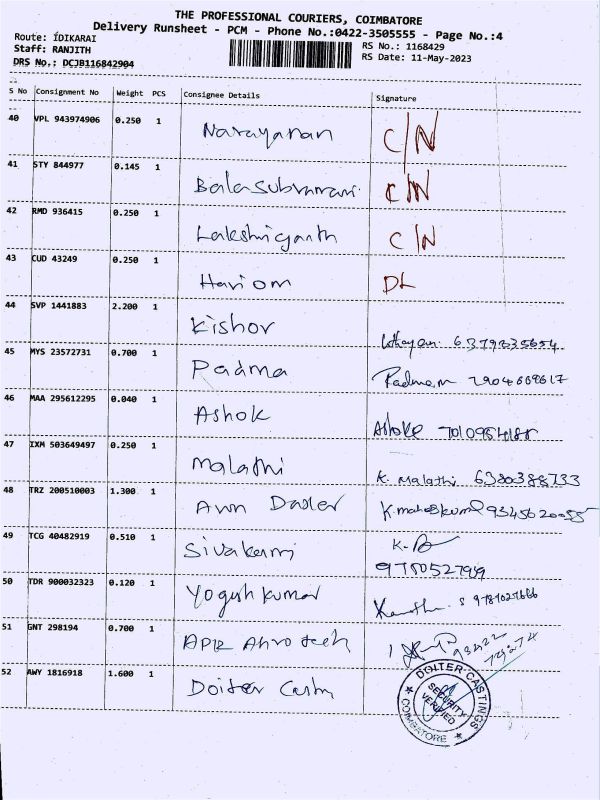 THE PROFESSIONAL COURIERS, COIMBATORE
Delivery Runsheet - PCM - Phone No.:0422-3505555 - Page No.:4
Route: IDIKARAI
RS No.: 1168429
Staff: RANJITH
RS Date: 11-May-2023
DRS No.: DCJB116842904
S No Consignment No Weight PCS Consignee Details Signature
40 VPL 943974906 0.250 1 Narayanan C/N
41 STY 844977 0.145 1 Balasubramani C/N
42 RMD 936415 0.250 1 C/N
43 CUD 43249 0.250 1 Hariom DL
44 SVP 1441883 2.200 1 Kishor
45 MYS 23572731 0.700 1 Padma
46 MAA 295612295 0.040 1 Ashok Ashok
47 IXM 503649497 0.250 1 Malathi K. Malathi 6380388733
48 TRZ 200510003 1.300 1
49 TCG 40482919 0.510 1 Sivakami
50 TDR 900032323 0.120 1 Yogesh Kumar
51 GNT 298194 0.700 1 APR
52 AWY 1816918 1.600 1 Doiter
DOITER CASTINGS
SECURITY
VERIFIED
COIMBATORE